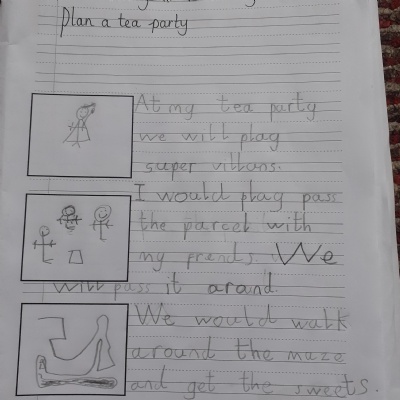 Plan a tea party
At my tea party
we will play
super villans.
I would play pass
the parcel with
my frends. We
will pass it arand
We would walk
around the maze
and get the sweets.